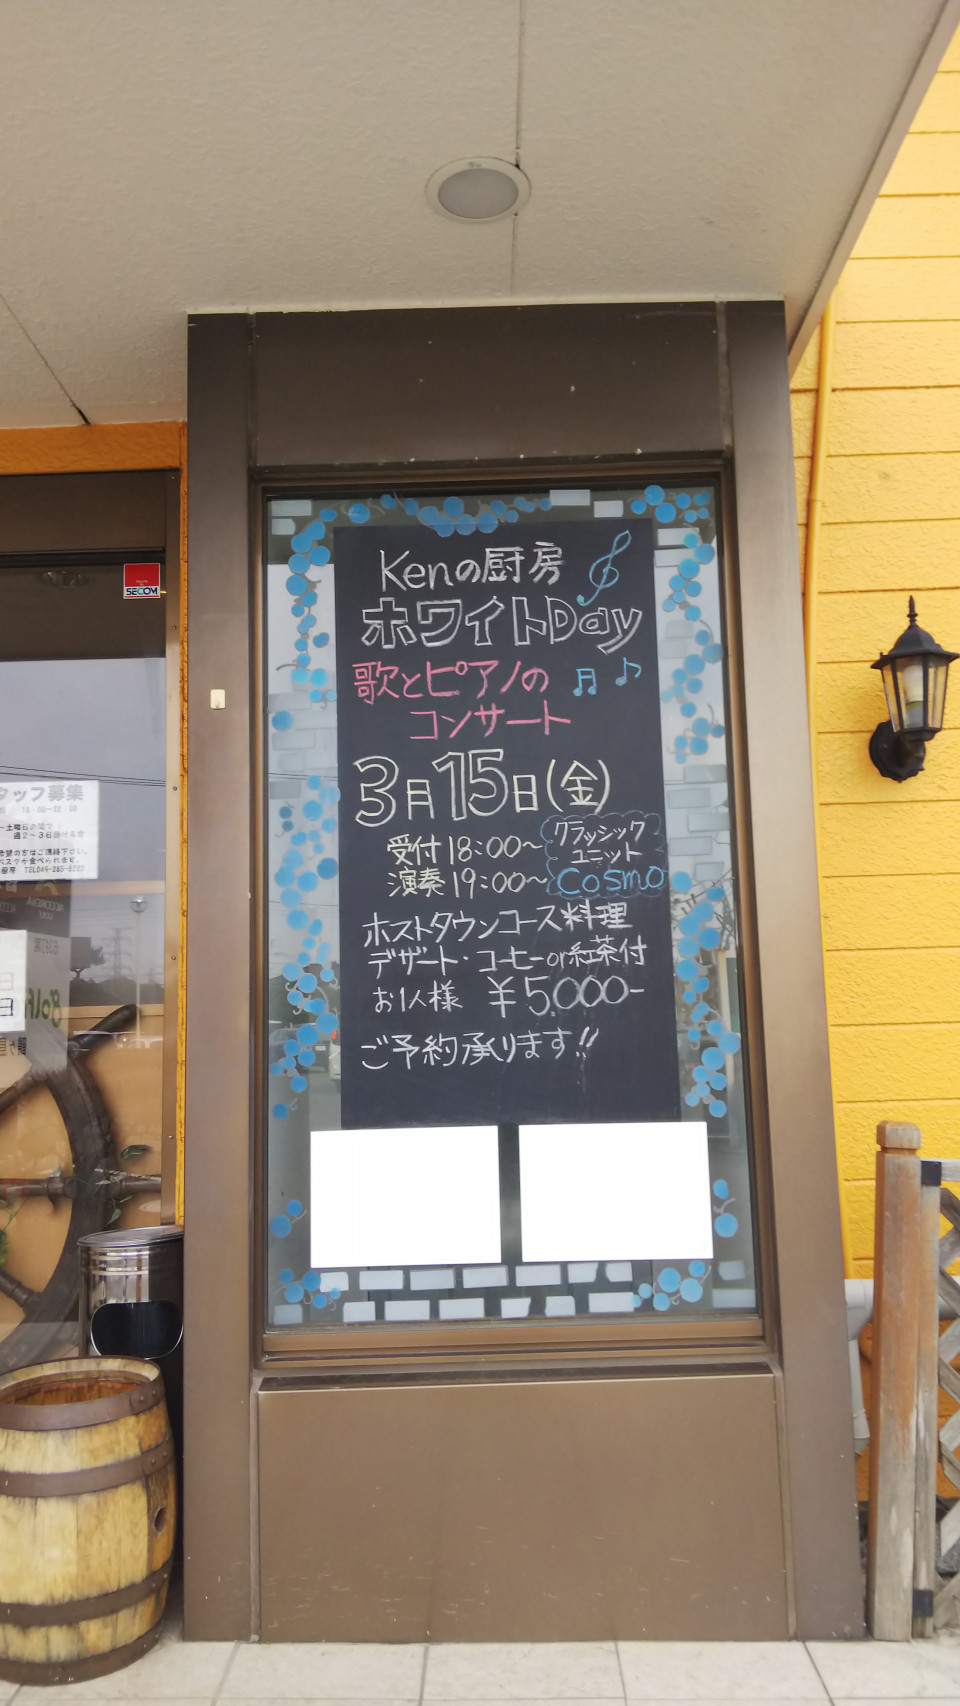 Kenの厨房
ホワイトDay
歌とピアノの
コンサート
3月15日(金)
受付 18:00~
演奏 19:00~
クラッシック
ユニット
COSMO
ホストタウンコース料理
デザート・コーヒーor紅茶付
お1人様 ¥5.000-
ご予約承ります!!
SECOM
タッフ募集